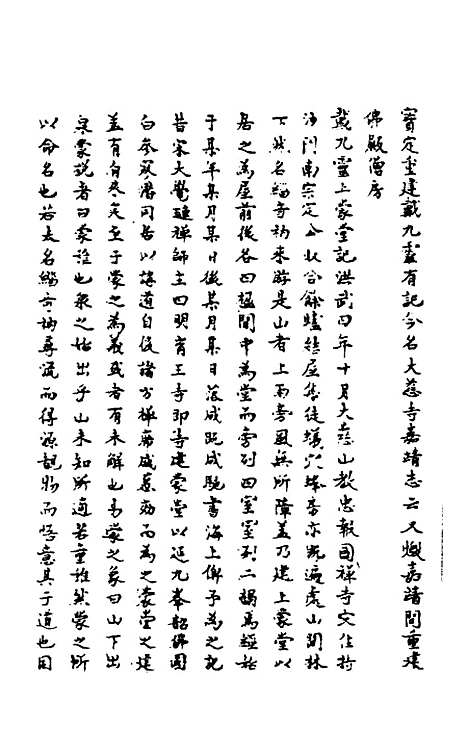 寶定重建戴九靈有記今名大慈寺嘉靖志云又燬嘉靖間重建
佛殿僧房
戴九靈上蒙堂記洪武四年十月大慈山教忠報國禪寺文住持
沙門南宗定公收合餘燼結屋集徒壞穴既遍虎山間林
下㦯名緇奇衲來游是山者上雨旁風無所障盖乃建上蒙堂以
居之為屋前後各四楹間中為堂而旁列四室室列二榻焉經始
于某年某月某日後某月某日落成既成馳書海上俾予為之記
昔宋大覺璉禪師主四明育王寺即寺建蒙堂以延九峯韶佛國
白參寂潛司告以講道自後諸方禪席咸慕効而為之蒙堂之建
盖有自來矣至于蒙之為義或者有未解也易蒙之象曰山下出
泉蒙說者曰蒙稚也泉之始出乎山未知所適若童稚然蒙之所
以命名也若夫名緇奇衲尋流而得源觀物而悟意其于道也固